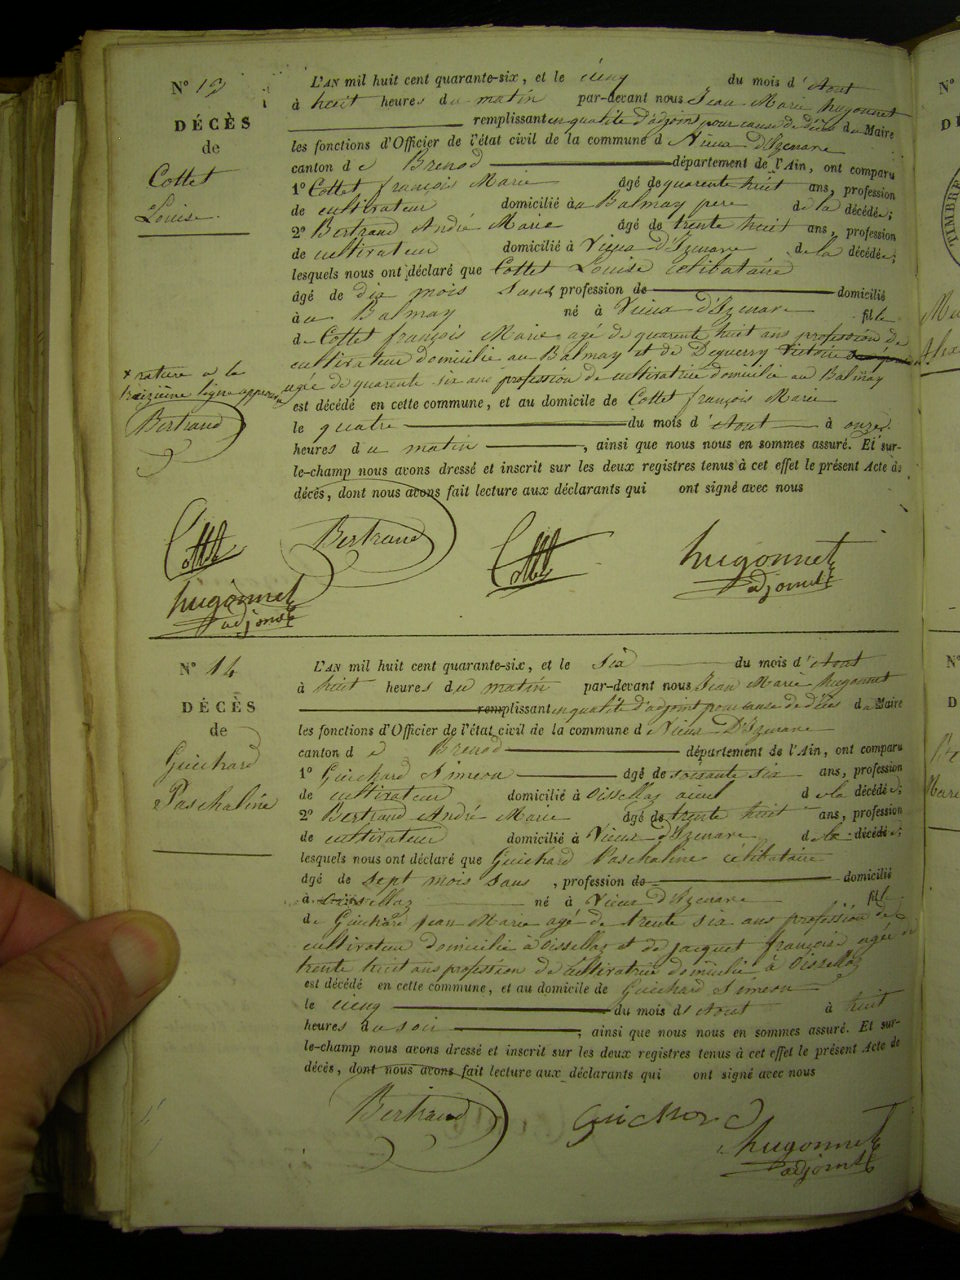 N° 13
DÉCÈS
de
Cottet
Louise
L'AN mil huit cent quarante-six, et le cinq du mois d'Aout
à huit heures du matin par-devant nous Jean Marie hugonnet
remplissant en qualité d'adjoint pour cause de décès du Maire
les fonctions d'Officier de l'état civil de la commune d Vieux d'Izenave
canton de Brenod département de l'Ain, ont comparu
1° Cottet françois Marie âgé de quarente huit ans, profession
de cultivateur domicilié au Balmay pere de la décédée;
2° Bertrand André Marie âgé de trente huit ans, profession
de cultivateur domicilié à Vieux d'Izenave de la décédée;
lesquels nous ont déclaré que Cottet Louise célibataire
âgé de dix mois sans profession de domicilié
à au Balmay né à Vieux d'Izenave fille
de Cottet françois Marie agé de quarente huit ans profession de
cultivateur domicilié au Balmay et de Deguerry Victoire
agée de quarente six ans profession de cultivatrice domicilié au Balmay
est décédé en cette commune, et au domicile de Cottet françois Marie
le quatre du mois d'Aout à onze
heures du matin, ainsi que nous nous en sommes assuré. Et sur-
le-champ nous avons dressé et inscrit sur les deux registres tenus à cet effet le présent Acte de
décès, dont nous avons fait lecture aux déclarants qui ont signé avec nous
x rature a la
treizième ligne approuvé
Bertrand
Cottet Bertrand Cottet hugonnet
adjoint
hugonnet
adjoint
N° 14
DÉCÈS
de
Guichard
Paschaline
L'AN mil huit cent quarante-six, et le six du mois d'Aout
à huit heures du matin par-devant nous Jean Marie hugonnet
remplissant en qualité d'adjoint pour cause de décès du Maire
les fonctions d'Officier de l'état civil de la commune d Vieux D'Izenave
canton d e Brenod département de l'Ain, ont comparu
1° Guichard Simeon âgé de soixante six ans, profession
de cultivateur domicilié à Oissellaz aieul de la décédée;
2° Bertrand André Marie âgé de trente huit ans, profession
de cultivateur domicilié à Vieux d'Izenave de la décédée;
lesquels nous ont déclaré que Guichard Paschaline célibataire
âgé de sept mois sans, profession de domicilié
à né à Vieux d'Izenave fille
de Guichard jean Marie agé de trente six ans profession de
cultivateur domicilié à Oissellaz et de jacquet françoise agée de
trente huit ans profession de cultivatrice domicilié à Oissellaz
est décédé en cette commune, et au domicile de Guichard Simeon
le cinq du mois d'Aout à huit
heures du soir; ainsi que nous nous en sommes assuré. Et sur-
le-champ nous avons dressé et inscrit sur les deux registres tenus à cet effet le présent Acte de
décès, dont nous avons fait lecture aux déclarants qui ont signé avec nous
Bertrand Guichard
hugonnet
adjoint
TIMBRE